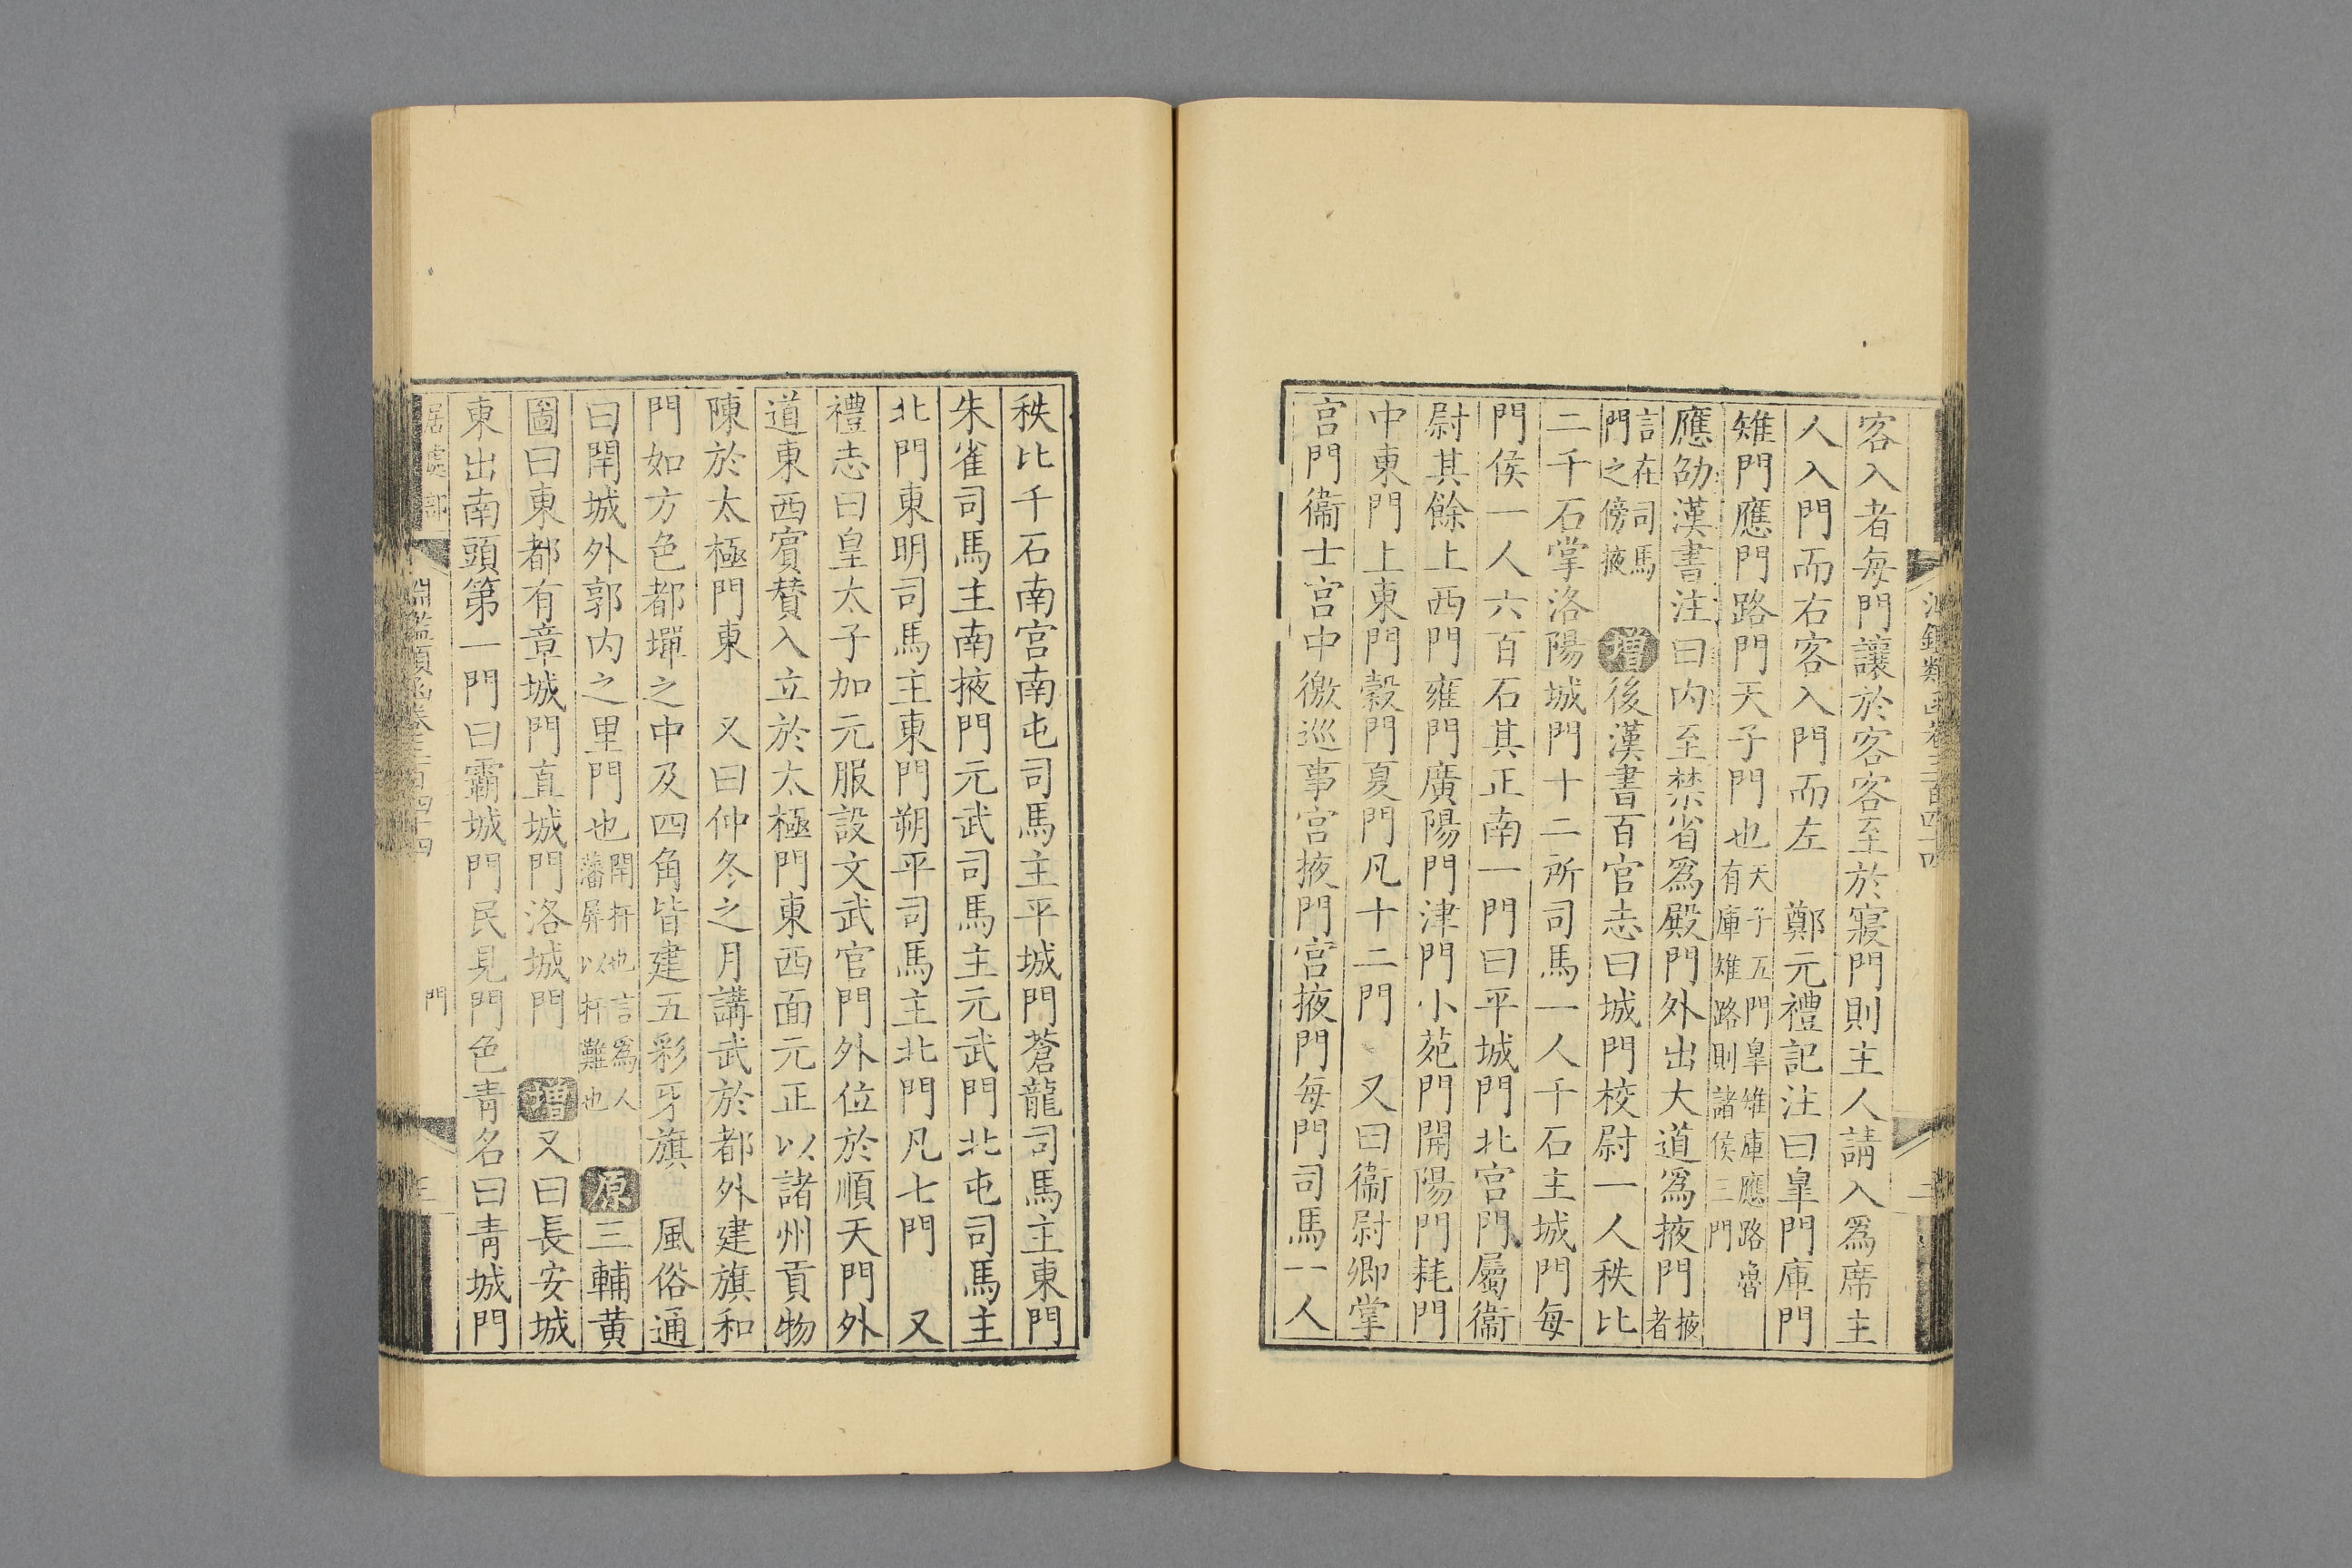 客入者每門讓於客客至於寢門則主人請入爲席主
人入門而右客入門而左　鄭元禮記注曰皐門庫門
雉門應門路門天子門也天子五門皐雉庫應路魯有庫雉路則諸侯三門
應劭漢書注曰内至禁省爲殿門外出大道爲掖門掖者
言在司馬門之傍掖　增後漢書百官志曰城門校尉一人秩比
二千石掌洛陽城門十二所司馬一人千石主城門每
門侯一人六百石其正南一門曰平城門北宫門屬衞
尉其餘上西門雍門廣陽門津門小苑門開陽門耗門
中東門上東門穀門夏門凡十二門　又曰衞尉卿掌
宫門衞士宫中徼巡事宫掖門宫掖門每門司馬一人
秩比千石南宫南屯司馬主平城門蒼龍司馬主東門
朱雀司馬主南掖門元武司馬主元武門北屯司馬主
北門東明司馬主東門朔平司馬主北門凡七門　又
禮志曰皇太子加元服設文武官門外位於順天門外
道東西賓贊入立於太極門東西面元正以諸州貢物
陳於太極門東　又曰仲冬之月講武於都外建旗和
門如方色都墠之中及四角皆建五彩牙旗　風俗通
曰閈城外郭内之里門也閈扞也言爲人藩屏以扞難也　原三輔黄
圖曰東都有章城門直城門洛城門　增又曰長安城
東出南頭第一門曰霸城門民見門色靑名曰靑城門
居處部　淵鑑類函卷三百四十四　門　三